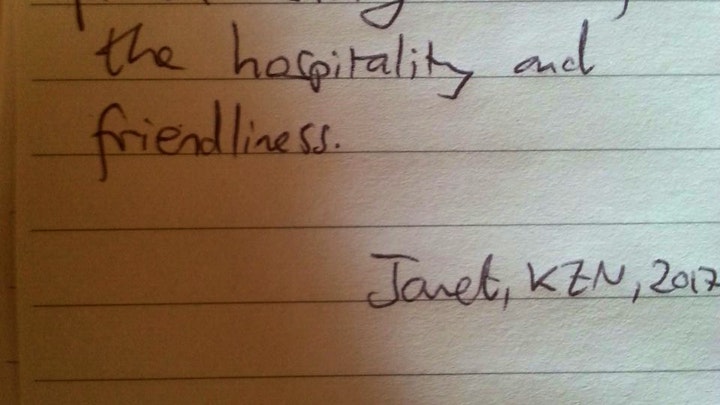 the hospitality and
friendliness.
Janet, KZN, 2017